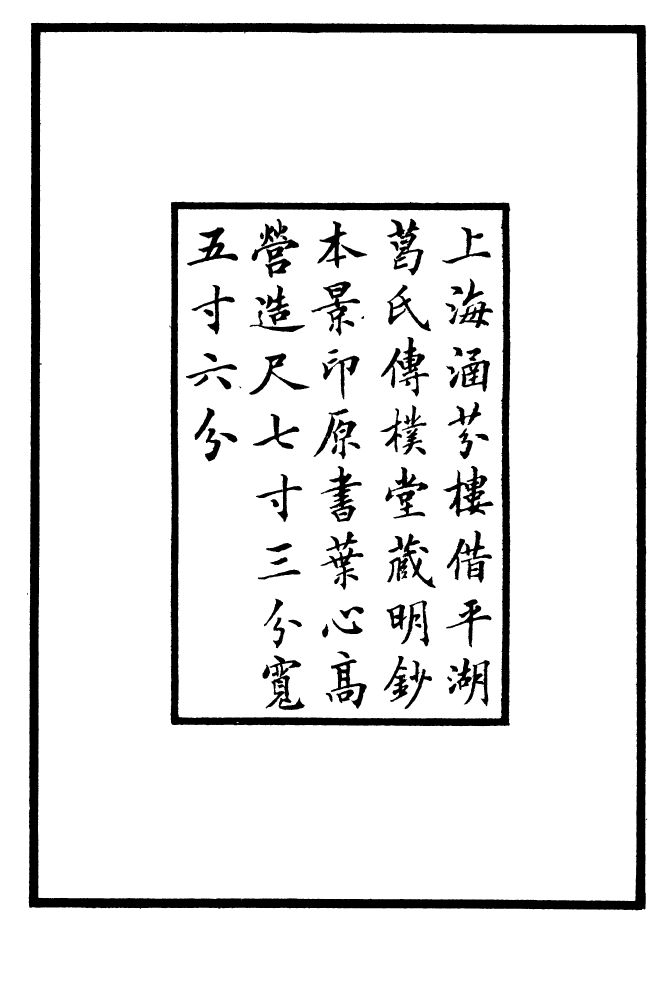 上海涵芬樓借平湖
葛氏傳樸堂藏明鈔
本景印原書葉心高
營造尺七寸三分寬
五寸六分